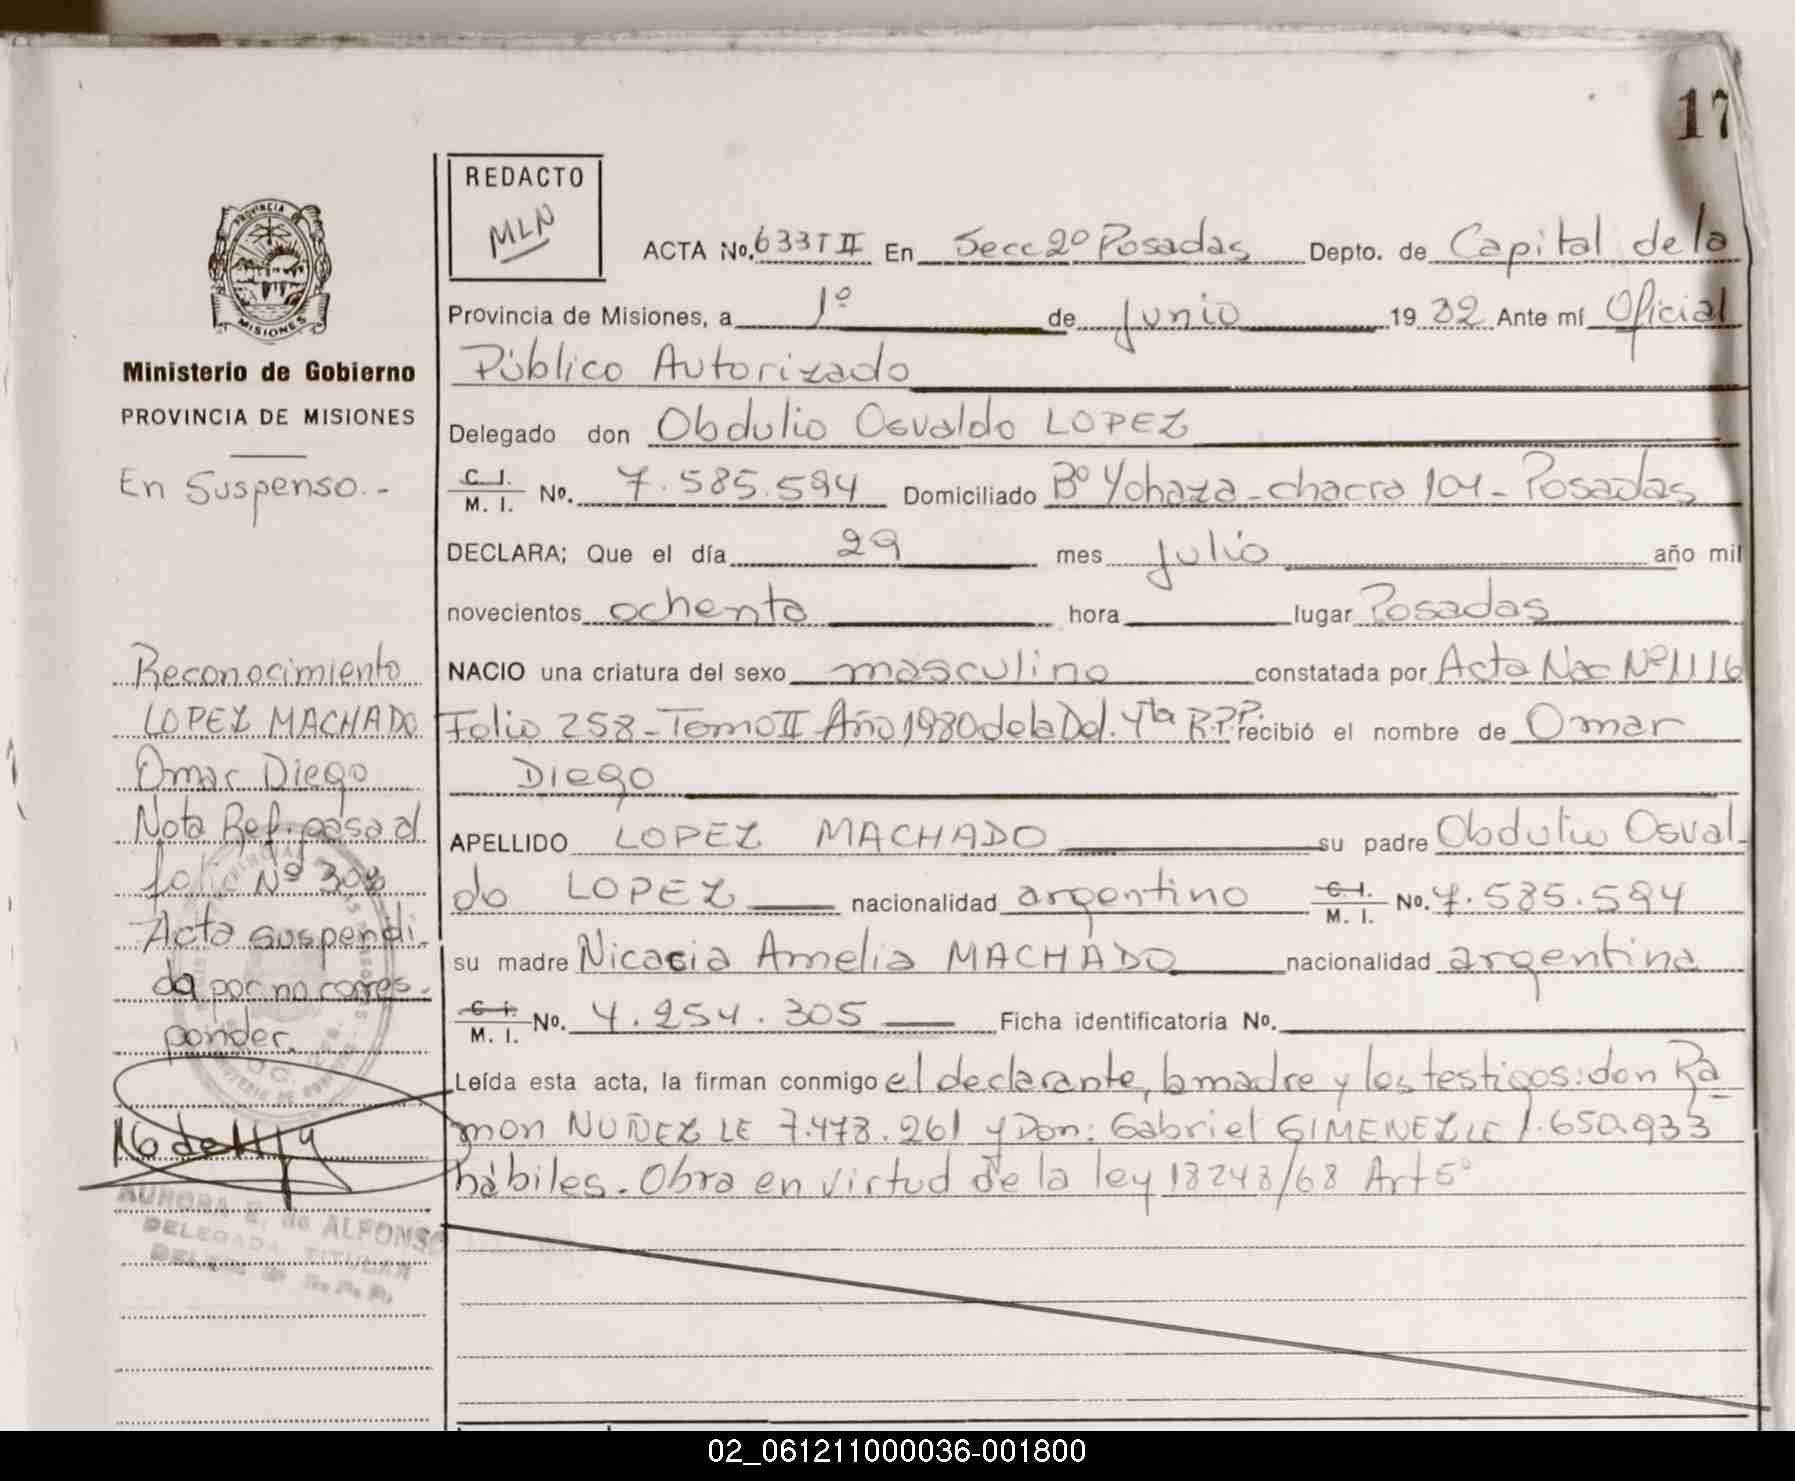 17
REDACTO
MLN
PROVINCIA DE
MISIONES
ACTA No. 633 T II En Secc 2º Posadas Depto. de Capital de la
Provincia de Misiones, a 1º de Junio 1982 Ante mí Oficial
Público Autorizado
Ministerio de Gobierno
PROVINCIA DE MISIONES
En Suspenso.-
Delegado don Obdulio Osvaldo LOPEZ
C. I.
M. I. No. 7.585.594 Domiciliado Bº Yohaza - chacra 104 - Posadas
DECLARA; Que el día 29 mes Julio año mil
novecientos ochenta hora lugar Posadas
NACIO una criatura del sexo masculino constatada por Acta Nac Nº 1116
Folio 258 - Tomo II Año 1980 de la Del. 4ta R.P.P. recibió el nombre de Omar
Diego
APELLIDO LOPEZ MACHADO su padre Obdulio Osval-
do LOPEZ nacionalidad argentino C. I. M. I. No. 7.585.594
su madre Nicacia Amelia MACHADO nacionalidad argentina
C. I.
M. I. No. 4.254.305 Ficha identificatoria No.
Leída esta acta, la firman conmigo el declarante, la madre y los testigos: don Ra-
mon NUÑEZ LE 7.473.261 y Don: Gabriel GIMENEZ LE 1.650.933
hábiles. Obra en virtud de la ley 18248/68 Art 5º
Reconocimiento
LOPEZ MACHADO
Omar Diego
Nota Ref. pasa al
folio Nº 309
Acta suspendi-
da por no corres-
ponder.
AURORA E. de ALFONSO
DELEGADA TITULAR
02_061211000036-001800